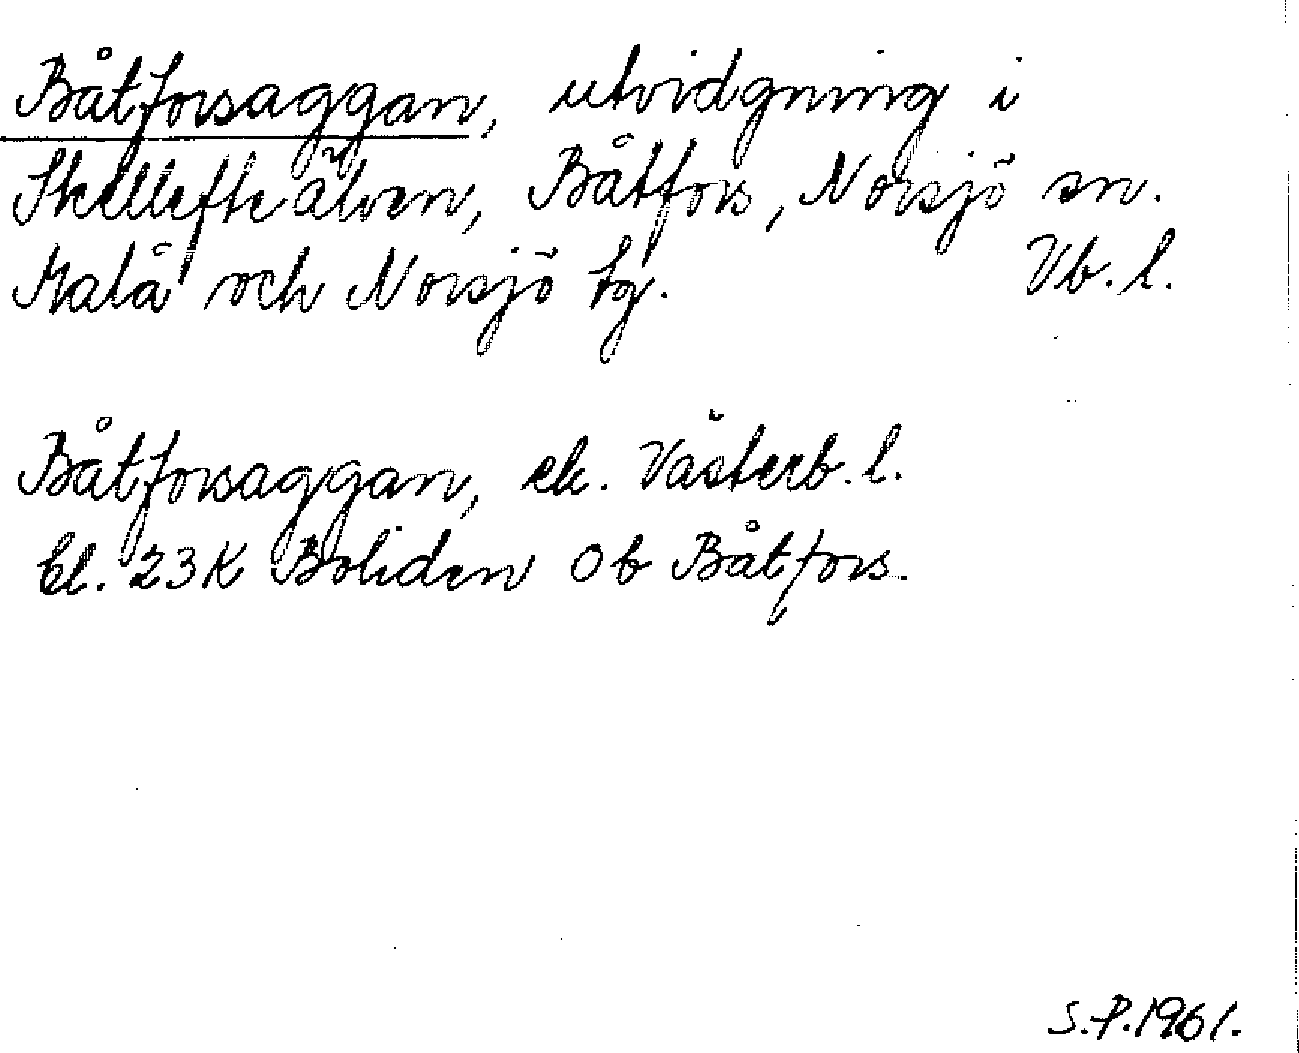 Båtforsaggan, utvidgning i
Skellefteälven, Båtfors, Norsjö sn.
Malå och Norsjö tg. Vb. l.
Båtforsaggan, ek. Västerb. l.
bl. 23K Boliden Ob Båtfors.
S.P. 1961.